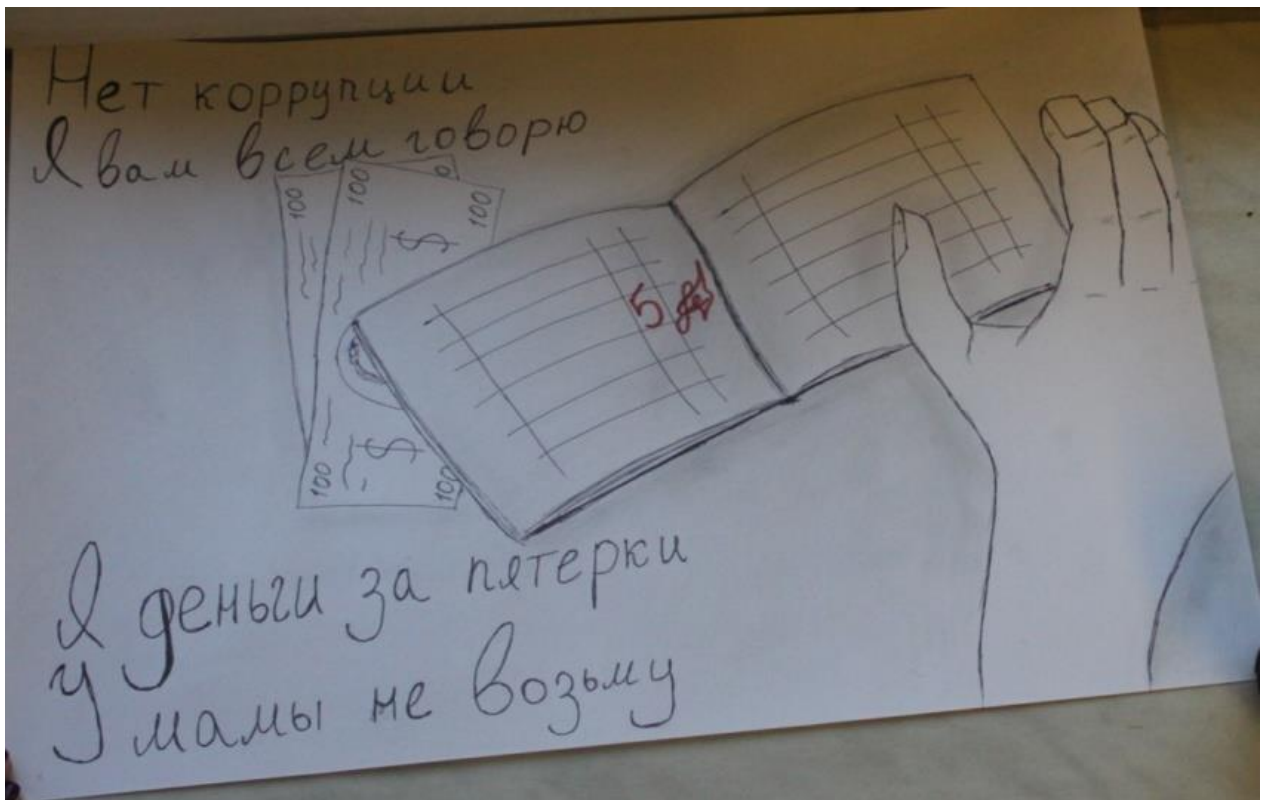 Нет коррупции
Я вам всем говорю
100
100
100
$
5
$
100
100
Я деньги за пятерки
у мамы не возьму